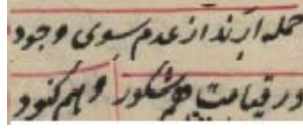 حمله آرند از عدم سوی وجود
در قیامت هم شکور و هم کنود